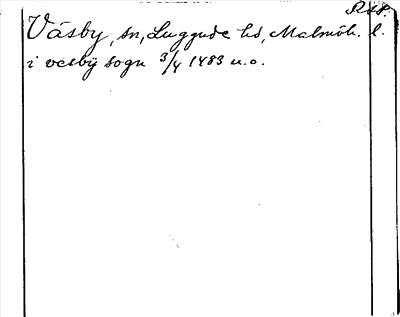 Väsby, sn, Luggude hd, Malmöh. l.
i vesby sogn 3/4 1483 u.o.